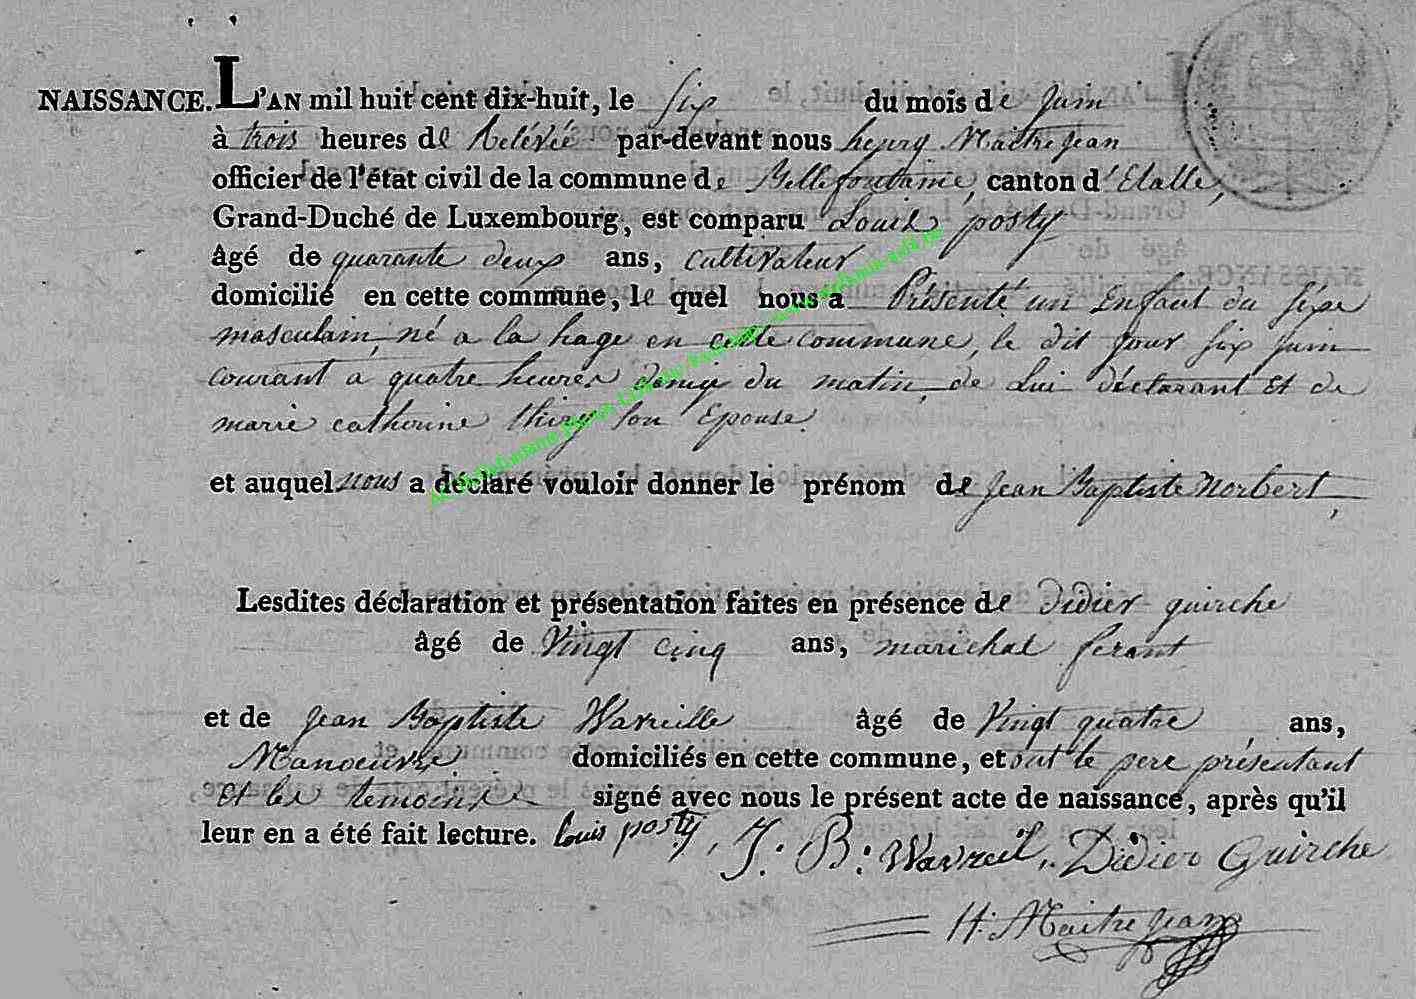 NAISSANCE. L'AN mil huit cent dix-huit, le six du mois de Juin
à trois heures de Relévée par-devant nous henry Maitrejean
officier de l'état civil de la commune de Bellefontaine, canton d'Etalle,
Grand-Duché de Luxembourg, est comparu Louis posty
âgé de quarante deux ans, cultivateur
domicilié en cette commune, le quel nous a Présenté un Enfant du sixe
masculain, né a la hage en cette commune, le dit jour six juin
courant a quatre heures demie du matin, de Lui déclarant Et de
marie catherine thiry son Epouse
et auquel nous a déclaré vouloir donner le prénom de Jean Baptiste Norbert,
Lesdites déclaration et présentation faites en présence de didier guirche
âgé de Vingt cinq ans, marichal ferant
et de Jean Baptiste Wareille âgé de Vingt quatre, ans,
Manoeuvre domiciliés en cette commune, et ont le pere présentant
et les temoins signé avec nous le présent acte de naissance, après qu'il
leur en a été fait lecture. Louis posty, J: B: Wavreil, Didier Guirche
H: Maitrejean